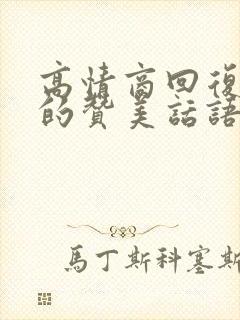 高情商回復
的贊美話語
馬丁斯科塞斯